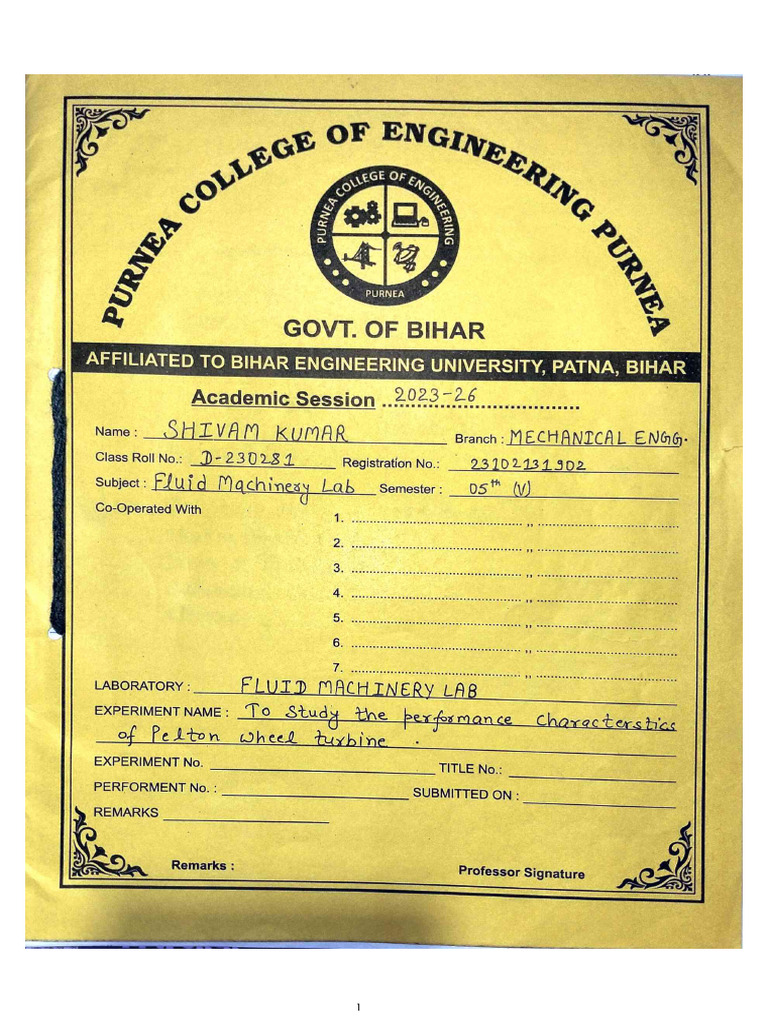 PURNEA COLLEGE OF ENGINEERING PURNEA
PURNEA COLLEGE OF ENGINEERING
PURNEA
GOVT. OF BIHAR
AFFILIATED TO BIHAR ENGINEERING UNIVERSITY, PATNA, BIHAR
Academic Session 2023-26
Name : SHIVAM KUMAR Branch : MECHANICAL ENGG.
Class Roll No.: D-230281 Registration No.: 23102131902
Subject : Fluid Machinery Lab Semester : 05th (V)
Co-Operated With
1. ,,
2. ,,
3. ,,
4. ,,
5. ,,
6. ,,
7. ,,
LABORATORY : FLUID MACHINERY LAB
EXPERIMENT NAME : To Study the performance characterstics
of Pelton wheel turbine .
EXPERIMENT No. TITLE No.:
PERFORMENT No. : SUBMITTED ON :
REMARKS
Remarks : Professor Signature
1